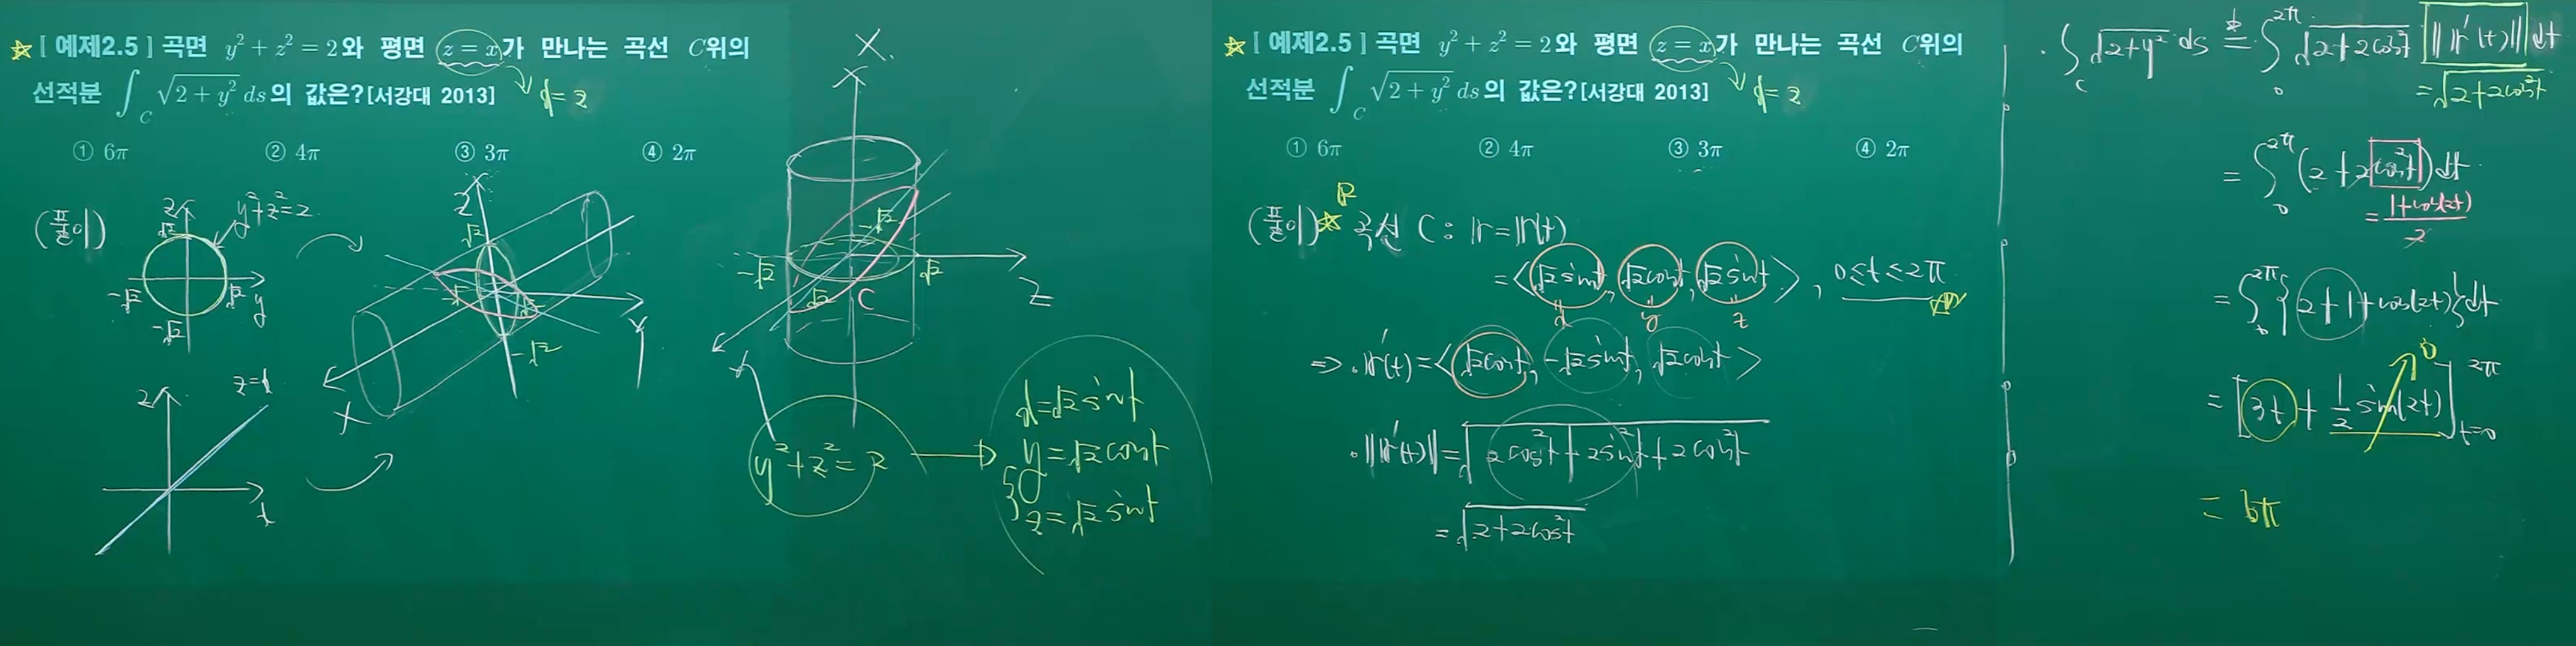 ☆ [ 예제2.5 ] 곡면 y²+z²=2와 평면 z=x가 만나는 곡선 C위의
선적분 ∫_C √(2+y²) ds의 값은?[서강대 2013]
x=z
① 6π ② 4π ③ 3π ④ 2π
(풀이)
z
y²+z²=2
√2
-√2
√2
y
-√2
z
z=x
x
Z
√2
-√2
√2
-√2
X
Y
X
-√2
-√2
√2
√2
C
Z
Y
y²+z²=2
x=√2sint
y=√2cost
z=√2sint
☆ [ 예제2.5 ] 곡면 y²+z²=2와 평면 z=x가 만나는 곡선 C위의
선적분 ∫_C √(2+y²) ds의 값은?[서강대 2013]
x=z
① 6π ② 4π ③ 3π ④ 2π
(풀이) ☆ 곡선 C : r=r(t)
=<√2sint, √2cost, √2sint>, 0≤t≤2π
x y z
⇒ · r'(t)=<√2cost, -√2sint, √2cost>
· ||r'(t)||=√(2cos²t+2sin²t+2cos²t)
=√(2+2cos²t)
· ∫_C √(2+y²) ds = ∫_0^2π √(2+2cos²t) ||r'(t)|| dt
=√(2+2cos²t)
= ∫_0^2π (2+2cos²t)dt
= (1+cos(2t))/2
= ∫_0^2π {2+1+cos(2t)}dt
= [3t + 1/2 sin(2t)]_t=0^2π
0
= 6π